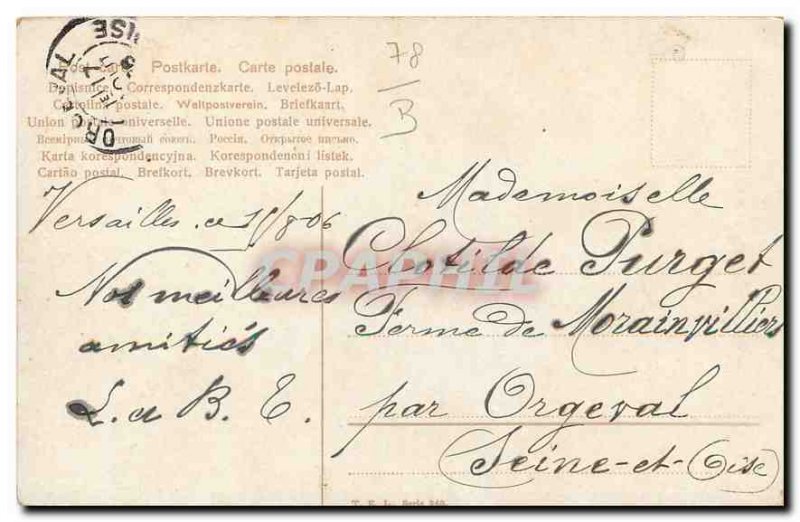 Post card. Postkarte. Carte postale.
Dopisnice. Correspondenzkarte. Levelező-Lap.
Cartolina postale. Weltpostverein. Briefkaart.
Union postale universelle. Unione postale universale.
Всемірный почтовый союзъ. Россія. Открытое письмо.
Karta korespondencyjna. Korespondenční listek.
Cartão postal. Brefkort. Brevkort. Tarjeta postal.
ORGEVAL
78
B
Versailles, ce 1/8-06
Nos meilleures
amitiés
L. a B. E.
Mademoiselle
Clotilde Purget
Ferme de Morainvilliers
par Orgeval
(Seine-et-Oise)
CPAPHIL
T. E. L. Serie